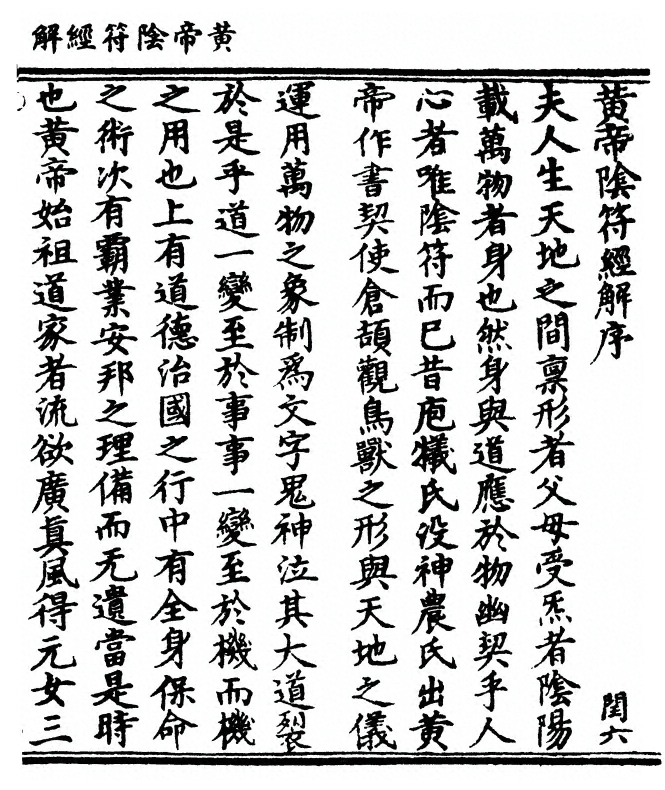 黄帝陰符經解
黄帝陰符經解序
閏六
夫人生天地之間禀形者父母受炁者陰陽
載萬物者身也然身與道應於物幽契乎人
心者唯陰符而已昔庖犧氏没神農氏出黄
帝作書契使倉頡觀鳥獸之形與天地之儀
運用萬物之象制爲文字鬼神泣其大道裂
於是乎道一變至於事事一變至於機而機
之用也上有道德治國之行中有全身保命
之術次有霸業安邦之理備而无遺當是時
也黄帝始祖道家者流欲廣真風得元女三